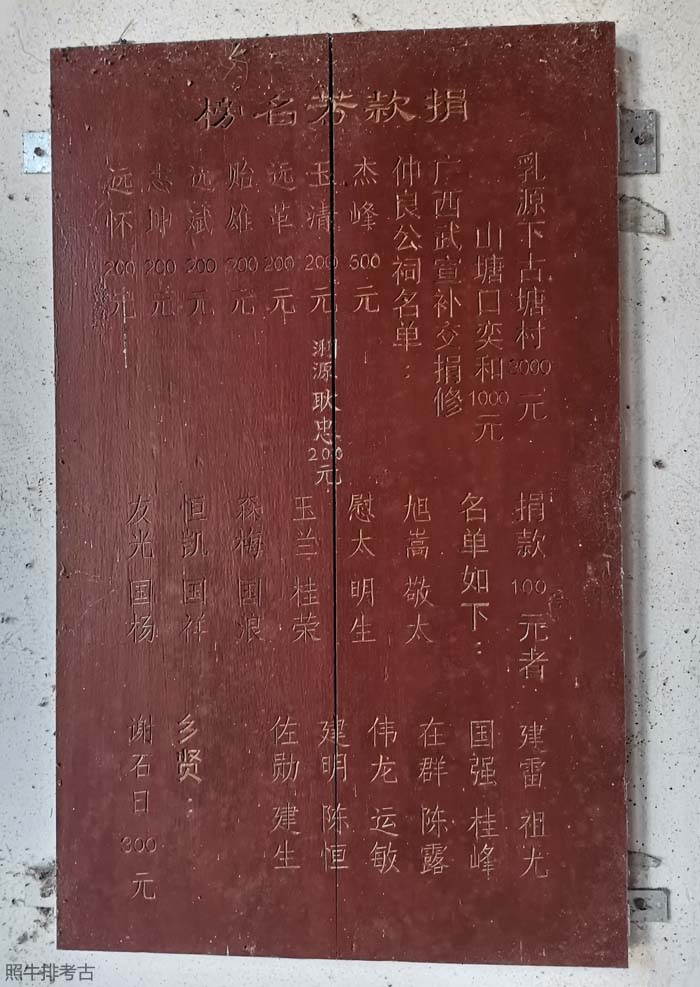 捐款芳名榜
乳源下古塘村3000元
山塘口奕和1000元
广西武宣补交捐修
仲良公祠名单：
杰峰500元
玉清200元
远革200元
贻雄200元
远斌200元
志坤200元
远怀200元
渊源耿忠200元
捐款100元者
名单如下：
旭嵩 敬太
慰太 明生
玉兰 桂荣
森梅 国浪
恒凯 国祥
友光 国杨
建雷 祖尤
国强 桂峰
在群 陈露
伟龙 运敏
建明 陈恒
佐勋 建生
乡贤：
谢石日300元
照牛排考古